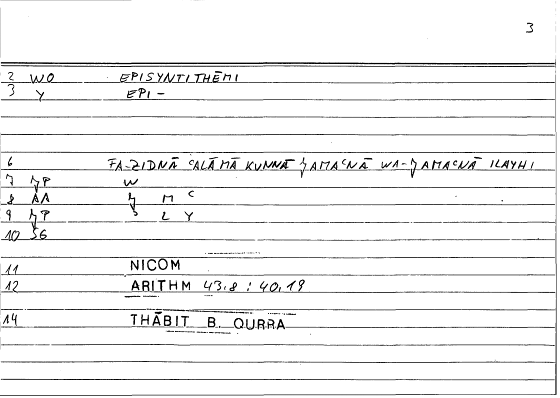 3
2 WO EPISYNTITHĒMI
3 Y EPI-
6 FA-ZIDNĀ ʿALĀ MĀ KUNNĀ ǦAMAʿNĀ WA-ǦAMAʿNĀ ILAYHI
7 ǦP W
8 AA Ǧ M ʿ
9 ǦP ʾ L Y
10 SG
11 NICOM
12 ARITHM 43,8 : 40,19
14 THĀBIT B. QURRA